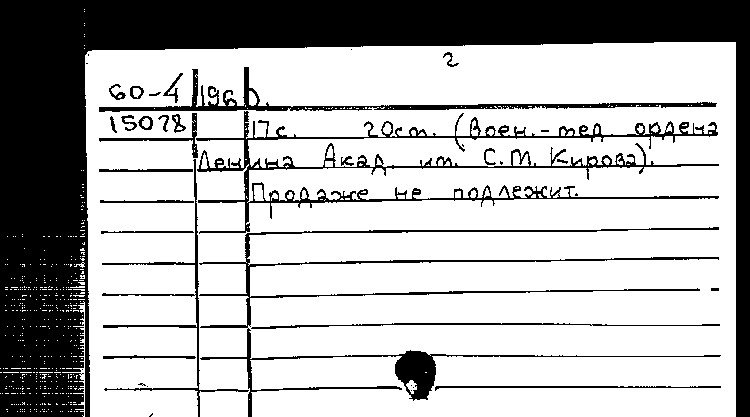 2
60-4 1960.
15078 17с. 20см. (Воен.-мед. ордена
Ленина Акад. им. С.М. Кирова).
Продаже не подлежит.